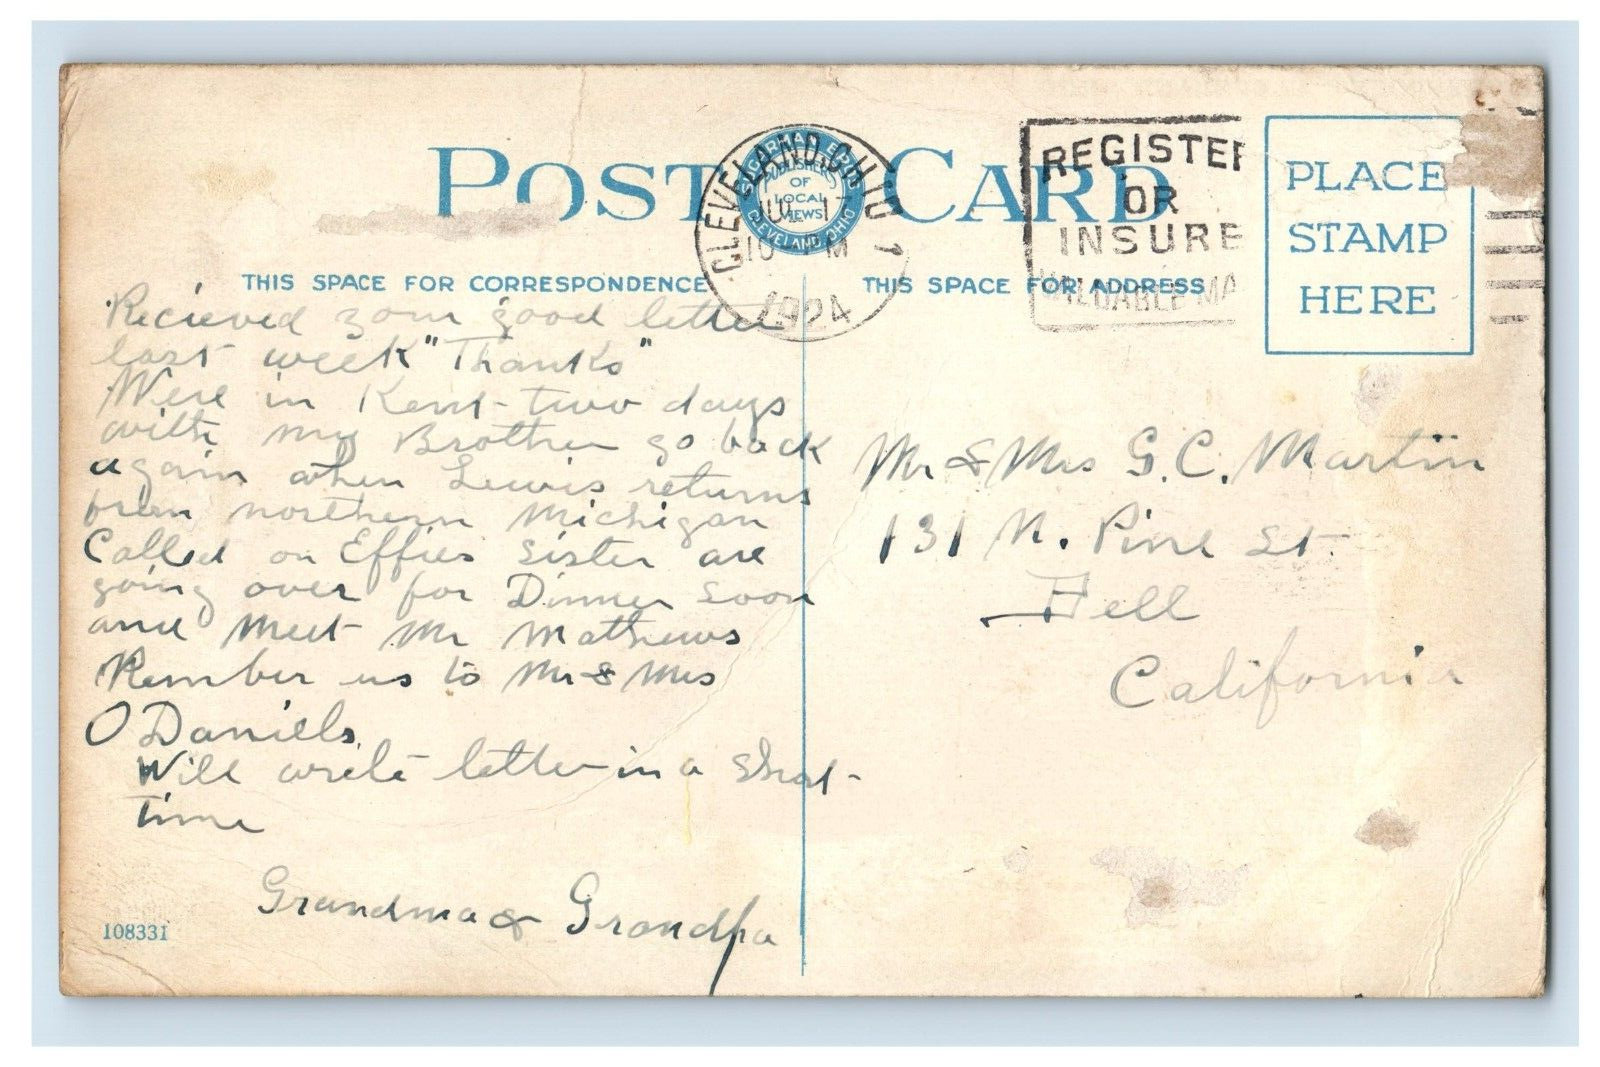 POST CARD
SAGERMAN BROS
PUBLISHERS
OF
LOCAL
VIEWS
CLEVELAND, OHIO
CLEVELAND, OHIO 1
JUL 17
10 - PM
1924
REGISTER
OR
INSURE
VALUABLE MA
PLACE
STAMP
HERE
THIS SPACE FOR CORRESPONDENCE
THIS SPACE FOR ADDRESS
Recieved your good letter
last week "Thanks"
Were in Kent two days
with my Brother go back
again when Lewis returns
from northern Michigan
Called on Effies Sister are
going over for Dinner soon
and Meet Mr Mathews
Rember us to Mr & Mrs
O Daniels.
Will write letter in a short
time
Grandma & Grandpa
Mr & Mrs G. C. Martin
131 N. Pine St.
Bell
California
108331